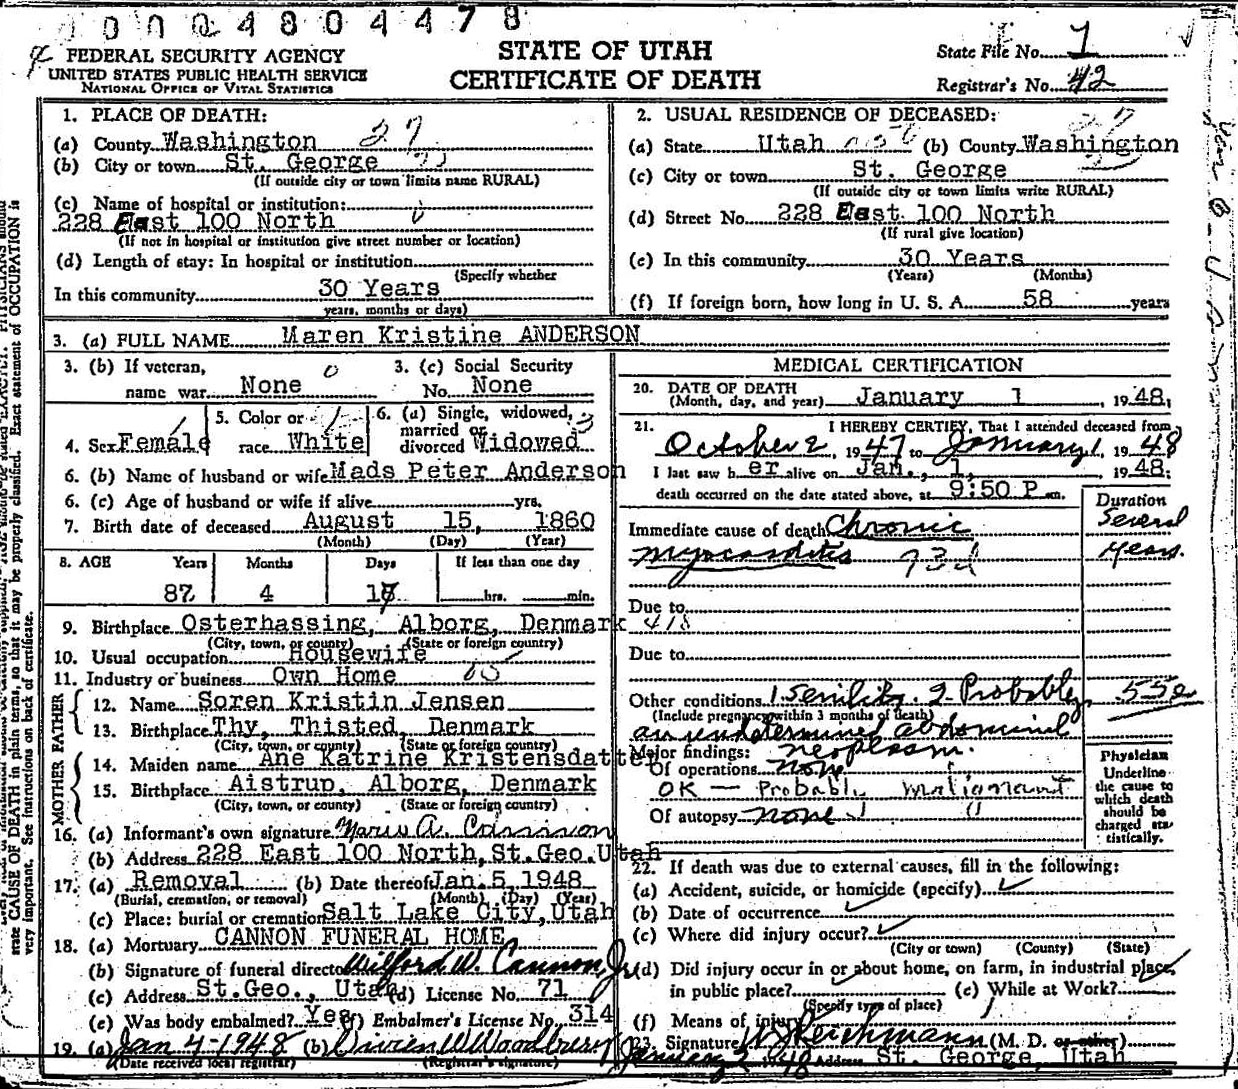 0 0 0 2 4 8 0 4 4 7 8
FEDERAL SECURITY AGENCY
UNITED STATES PUBLIC HEALTH SERVICE
NATIONAL OFFICE OF VITAL STATISTICS
STATE OF UTAH
CERTIFICATE OF DEATH
State File No. 1
Registrar's No. 42
1. PLACE OF DEATH:
(a) County Washington 27
(b) City or town St. George
(If outside city or town limits name RURAL)
(c) Name of hospital or institution:
228 East 100 North 0
(If not in hospital or institution give street number or location)
(d) Length of stay: In hospital or institution
(Specify whether
In this community 30 Years
years, months or days)
2. USUAL RESIDENCE OF DECEASED:
(a) State Utah (b) County Washington
(c) City or town St. George
(If outside city or town limits write RURAL)
(d) Street No. 228 East 100 North
(If rural give location)
(e) In this community 30 Years
(Years) (Months)
(f) If foreign born, how long in U. S. A. 58 years
3. (a) FULL NAME Maren Kristine ANDERSON
3. (b) If veteran, 0 3. (c) Social Security
name war None No. None
4. Sex Female 5. Color or race White 6. (a) Single, widowed, married or divorced Widowed
6. (b) Name of husband or wife Mads Peter Anderson
6. (c) Age of husband or wife if alive yrs.
7. Birth date of deceased August 15, 1860
(Month) (Day) (Year)
8. AGE Years Months Days If less than one day
87 4 17 hrs. min.
9. Birthplace Osterhassing, Alborg, Denmark
(City, town, or county) (State or foreign country)
10. Usual occupation Housewife
11. Industry or business Own Home
FATHER
12. Name Soren Kristin Jensen
13. Birthplace Thy, Thisted, Denmark
(City, town, or county) (State or foreign country)
MOTHER
14. Maiden name Ane Katrine Kristensdatter
15. Birthplace Aistrup, Alborg, Denmark
(City, town, or county) (State or foreign country)
16. (a) Informant's own signature
(b) Address 228 East 100 North, St.Geo.Utah
17. (a) Removal (b) Date thereof Jan. 5, 1948
(Burial, cremation, or removal) (Month) (Day) (Year)
(c) Place: burial or cremation Salt Lake City, Utah
18. (a) Mortuary CANNON FUNERAL HOME
(b) Signature of funeral director Wilford W. Cannon, Jr.
(c) Address St.Geo., Utah (d) License No. 71
(e) Was body embalmed? Yes (f) Embalmer's License No. 314
19. (a) Jan 4-1948 (b) Vivien W Woodbury
(Date received local registrar) (Registrar's signature)
MEDICAL CERTIFICATION
20. DATE OF DEATH
(Month, day, and year) January 1, 1948;
21. I HEREBY CERTIFY, That I attended deceased from
October 2, 1947 to January 1, 1948
I last saw her alive on Jan. 1, 1948;
death occurred on the date stated above, at 9:50 P m.
Duration
Immediate cause of death Chronic Several
myocarditis 93d years.
Due to
418
Due to
Other conditions 1. Senility. 2 Probably
(Include pregnancy within 3 months of death)
an undetermined abdominal
neoplasm.
Major findings:
Of operations none
OK — Probabli malignant
Of autopsy none
Physician
Underline
the cause to
which death
should be
charged sta
tistically.
22. If death was due to external causes, fill in the following:
(a) Accident, suicide, or homicide (specify)
(b) Date of occurrence
(c) Where did injury occur?
(City or town) (County) (State)
(d) Did injury occur in or about home, on farm, in industrial place,
in public place? (e) While at Work?
(Specify type of place)
(f) Means of injury
23. Signature Reichmann (M. D. or other)
January 2 1948 Address St. George, Utah
state CAUSE OF DEATH in plain terms, so that it may be properly classified. Exact statement of OCCUPATION is
very important. See instructions on back of certificate.